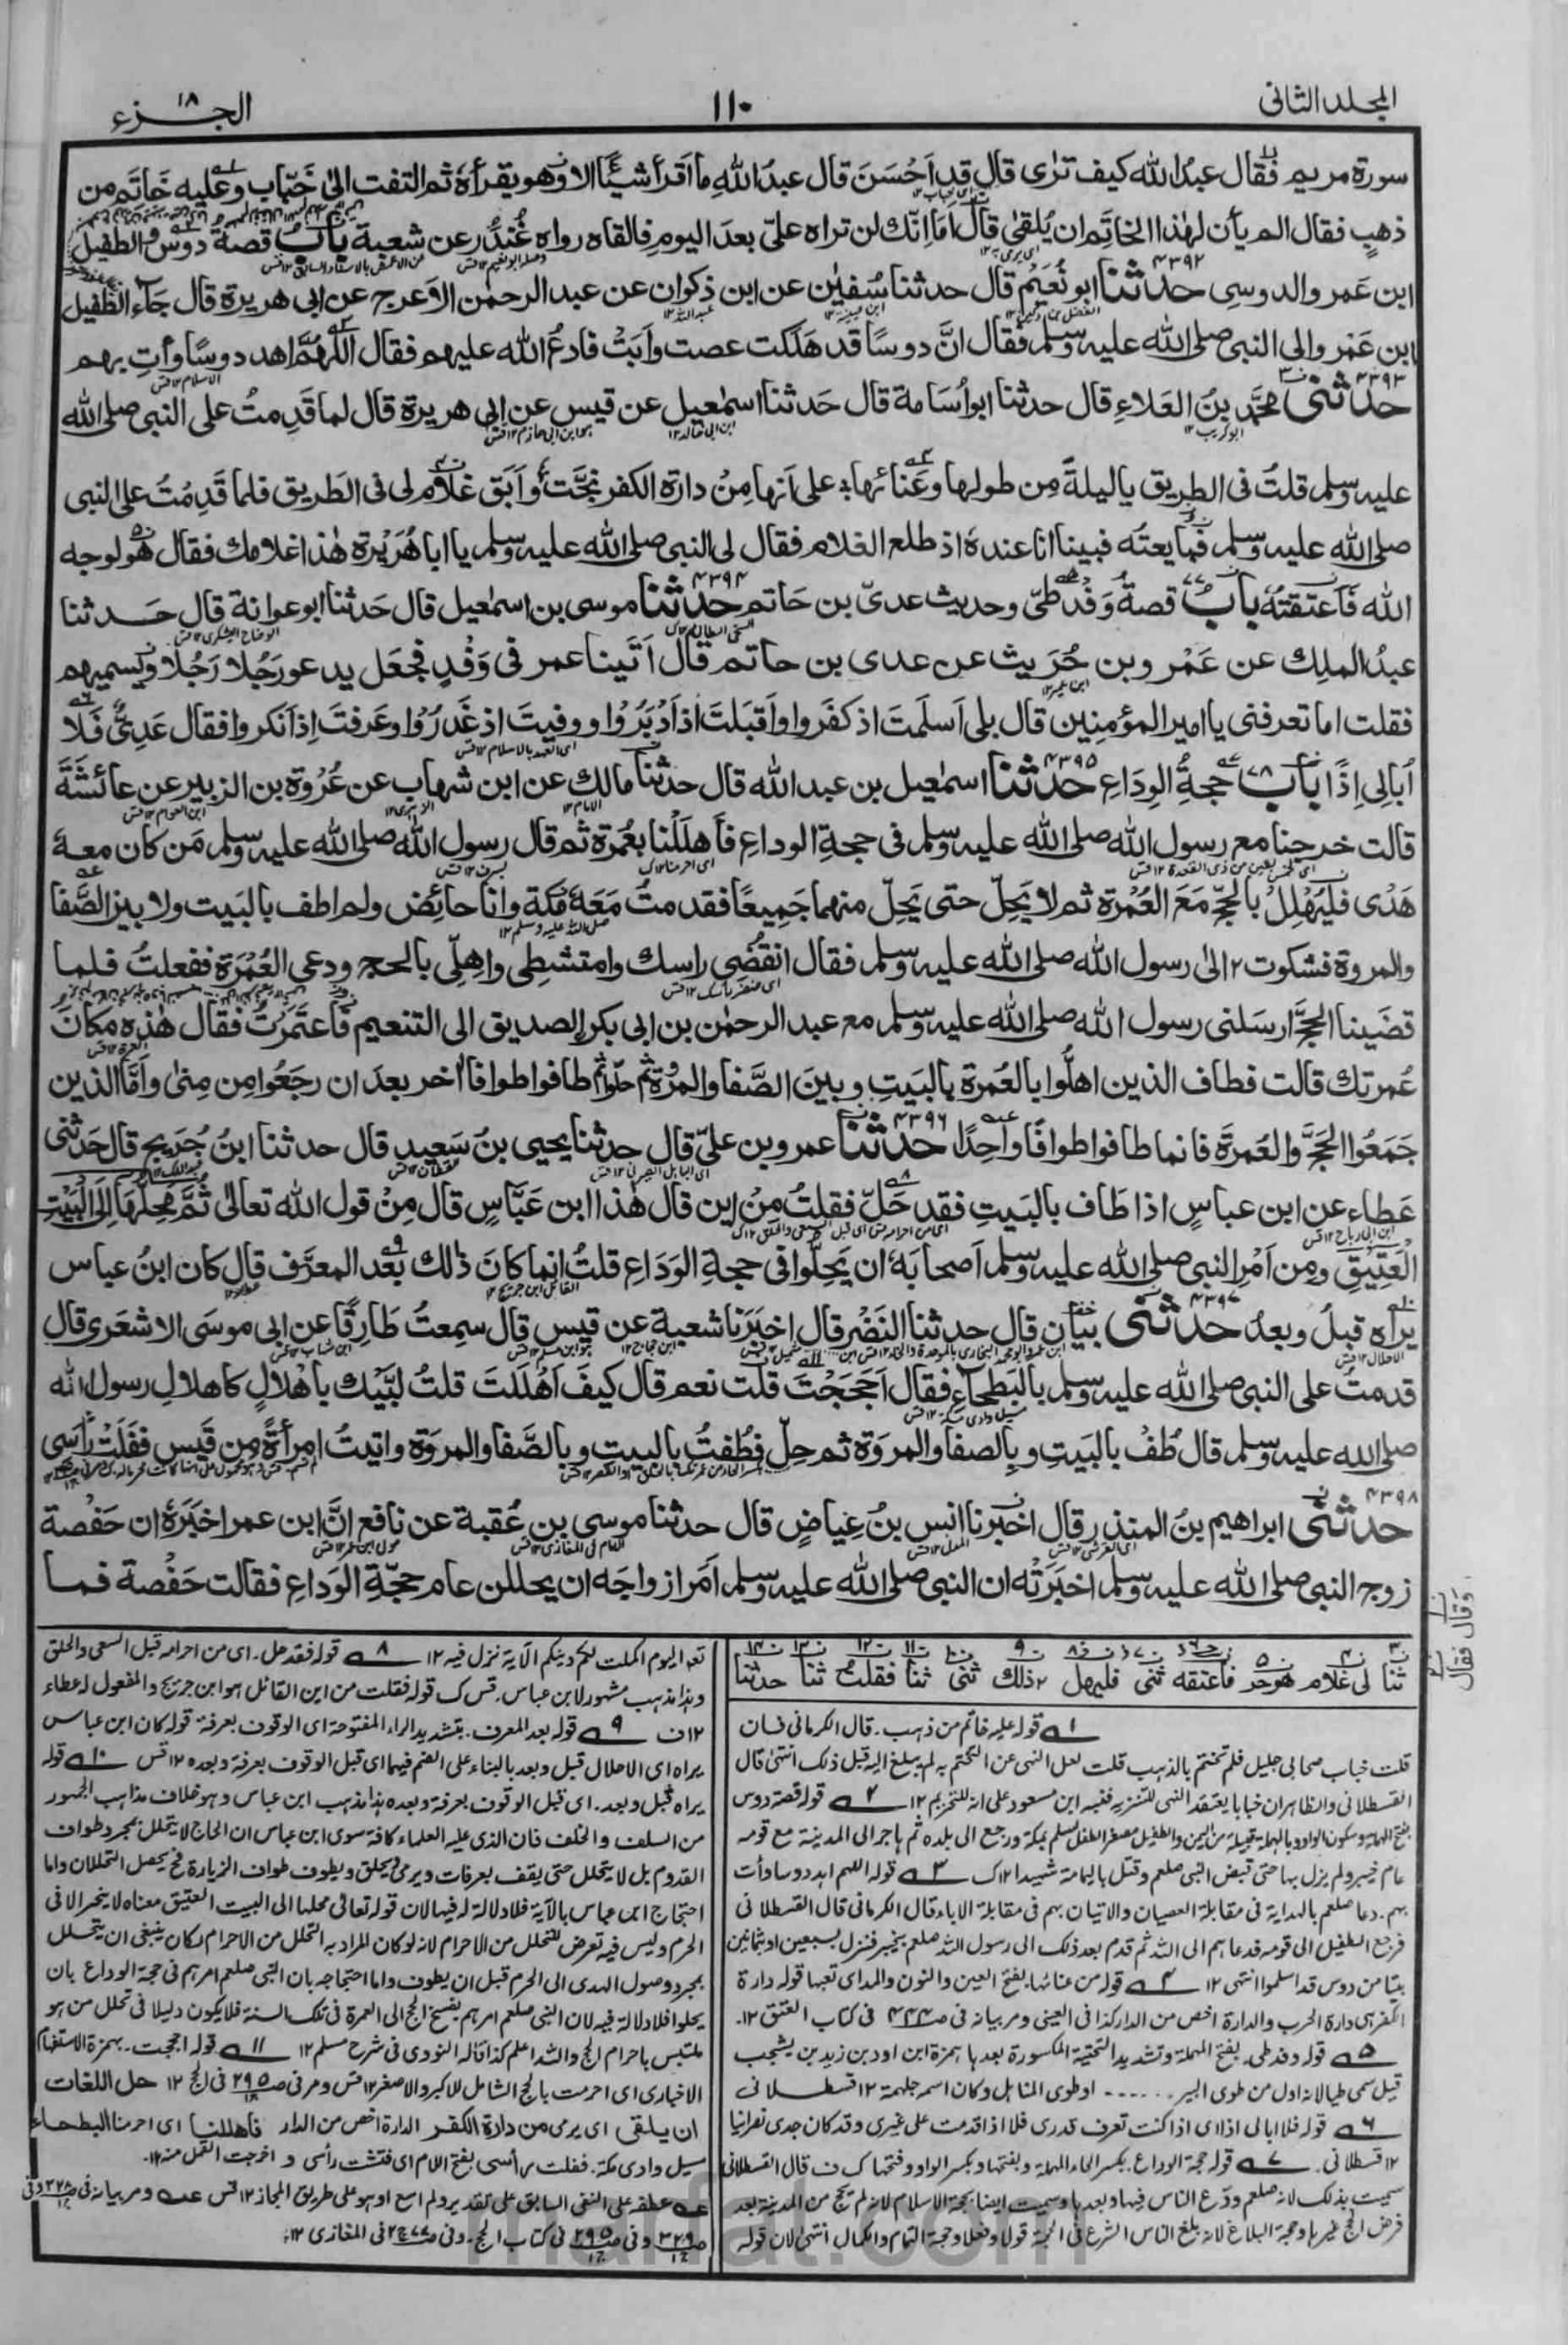 المجلد الثانی
١١٠
الجـــزء ١٨
سورة مريم فقال عبدُ الله كيف ترٰى قال قد اَحْسَنَ قال عبدُ اللهِ ما اَقرأ شيئًا الا وهو يقرأهٗ ثم التفت الىٰ خَبّاب وعليه خَاتَم من
ذهبٍ فقال الم يأن لهٰذا الخاتَم ان يُلقٰى قال اَمَا اِنّك لن تراه علىّ بعدَ اليومِ فالقاه رواه غُندُر عن شعبة بابُ قصة دَوسٍ والطفيل
ابن عَمرو الدوسِى حدثنا ابو نُعَيْم قال حدثنا سُفيٰن عن ابن ذكوان عن عبد الرحمٰن الاَعرج عن ابى هريرة قال جآء الطُفيل
ابن عَمرو الى النبى صلى الله عليه وسلم فقال انَّ دوسًا قد هَلَكت عصت وابَتْ فادعُ الله عليهم فقال اللّٰهُمَّ اهد دوسًا وأتِ بهم
حدثنى محمَّد بنُ العَلاءِ قال حدثنا ابو اُسَامة قال حَدثنا اسمٰعيل عن قيس عن ابى هريرة قال لما قَدِمتُ على النبى صلى الله
عليه وسلم قلتُ فى الطريق ياليلةً مِن طولها وعَنائها ؞ على اَنها مِنُ دارة الكفر نجّت وأبَق غلامٌ لى فى الطَريق فلما قَدِمُتُ على النبى
صلى الله عليه وسلم فبايعتُه فبينا انا عندهٗ اذ طلع الغلام فقال لى النبى صلى الله عليه وسلم يا ابا هُرَيْرة هٰذا غلامك فقال هُو لوجه
الله فَاَعتقتهٗ بابُ ٧٧ قصة وَفْد طىّ وحديث عدىّ بن حَاتم ٤٣٩٤ حدثنا موسى بن اسمٰعيل قال حَدثنا ابو عوانة قال حَــدثنا
عبدُ الملِك عن عَمْرو بن حُرَيث عن عدى بن حاتم قال اَتَينا عمر فى وَفْدٍ فجَعَل يدعو رَجُلا رَجُلا ويُسميهم
فقلت اما تعرفنى يا امير المؤمنين قال بلى اَسلَمتَ اذ كفَروا واَقبَلتَ اذ اَدْبَرُوا ووفيتَ اذ غَدَرُوا وعَرفتَ اِذ اَنكروا فقال عَدِىٌّ فَلا
اُبالِى اِذًا بابُ ٧٨ حجةُ الوِدَاعِ ٤٣٩٥ حدثنا اسمٰعيل بن عبد الله قال حدثنا مالك عن ابن شهاب عن عُرْوة بن الزبير عن عائشَةَ
قالت خرجنا مع رسول الله صلى الله عليه وسلم فى حجةِ الوداعِ فأهلَلْنا بعُمرَة ثم قال رسول الله صلى الله عليه وسلم مَن كان معهٗ
هَدْى فليُهْلِلُ بالحجِّ مَعَ العُمْرَة ثم لا يَحِلّ حتى يَحِلّ منهما جَمِيعًا فقدمتُ مَعَهٗ مَكة وانا حائِض ولم اطف بالبَيت ولا بين الصَّفا
والمروة فشكوت الىٰ رسول الله صلى الله عليه وسلم فقال انقُضِى راسك وامتشطِى واهِلّى بالحج ودعى العُمْرَة ففعلتُ فـلمـا
قضَينا الحجَّ ارسَلنى رسول الله صلى الله عليه وسلم مع عبد الرحمٰن بن ابى بكر الصديق الى التنعيم فَاعتَمَرْتُ فقال هٰذِه مكانَ
عُمرتك قالت فطاف الذين اهلُّوا بالعُمرة بالبَيتِ وبينَ الصَّفا والمرْوَة ثم حلّوا ثم طافوا طوافا اٰخر بعدَ ان رجَعُوا مِن مِنىٰ واَمَّا الذين
جَمَعُوا الحَجَّ والعُمرَةَ فانما طافوا طوافًا واحِدًا ٤٣٩٦ حدثنا عمرو بن علىّ قال حدثنا يحيى بنُ سَعيد قال حدثنا ابنُ جُرَيج قال حَدثنى
عَطاء عن ابن عباسٍ اذا طَاف بالبَيتِ فقد حَلّ فقلتُ مِنْ اين قال هٰذا ابن عَبَّاسٍ قال مِنْ قول الله تعالىٰ ثُمَّ مَحِلُّهَا اِلَى الْبَيْتِ
الْعَتِيْقِ ومِن اَمْرِ النبى صلى الله عليه وسلم اَصحابَهٗ ان يَحِلّوا فى حجةِ الوَدَاعِ قلتُ انما كانَ ذٰلك بَعْد المعرَّف قال كان ابنُ عباس
يراه قبلُ وبعدُ ٤٣٩٧ حدثنى بيَان قال حدثنا النَضْر قال اخبَرَنا شعبة عن قيس قال سمِعتُ طَارِقًا عن ابى موسَى الاشعَرى قال
قدمتُ على النبى صلى الله عليه وسلم بالبَطحآءِ فقال اَحَجَجْتَ قلت نعم قال كيفَ اَهْلَلتَ قلتُ لبَّيك باهْلالٍ كاهلالِ رسول الله
صلى الله عليه وسلم قال طُفْ بالبَيتِ وبالصفا والمروَة ثم حِلّ فطُفتُ بالبيتِ وبالصَّفا والمروَة واتيتُ امرأةً مِن قَيس ففَلَتْ رأسى
٤٣٩٨ حدثنى ابراهيم بنُ المنذر قال اخبَرنا انس بنُ عِياضٍ قال حدثنا موسى بن عُقبة عن نافع انَّ ابن عمر اخبَرَهٗ ان حَفْصة
زوج النبى صلى الله عليه وسلم اخبَرَتْه ان النبى صلى الله عليه وسلم اَمَر ازواجَه ان يحللن عام حجّةِ الوَداعِ فقالت حَفْصة فمـا
وقال فقال
ثنا لى غلام هو حر فاعتقه ثنى فليهل ذلك ثنى ثنا فقلت ثنا حدثنا
١ قوله عليه خاتم من ذهب۔ قال الكرمانى فان
قلت خباب صحابى جليل فلم تختم بالذهب قلت لعل النهى عن التختم به لم يبلغ اليه قبل ذلك انتهىٰ قال
القسطلانى والظاهر ان خبابا يعتقد النهى للتنزيه فنبه ابن مسعود على انه للتحريم ١٢ ٢ قوله قصة دوس
عام خيبر ولم يزل بها حتى قبض النبى صلعم وقتل باليمامة شهيدا ١٢ك ٣ قوله اللهم اهد دوسا وأت
بهم۔ دعا صلعم بالهداية فى مقابلة العصيان والاتيان بهم فى مقابلة الاباء قال الكرمانى قال القسطلانى
فرجع الطفيل الى قومه فدعاهم الى الله ثم قدم بعد ذلك الى رسول الله صلعم بخيبر فنزل بسبعين او ثمانين
بيتا من دوس قد اسلموا انتهى ١٢ ٤ قوله من عنائها۔ بفتح العين والنون والمد اى تعبها قوله دارة
الكفر هى دارة الحرب والدارة اخص من الدار كذا فى العينى ومر بيانه فى ص٣٤٤ فى كتاب العتق ١٢۔
٥ قوله وفد طى۔ بفتح المهملة وتشديد التحتية المكسورة بعدها همزة ابن ادد بن زيد بن يشجب
قيل سمى طيا لانه اول من طوى البير ...... او طوى المناهل وكان اسمه جلهمة ١٢ قسطلانى
٦ قوله فلا ابالى اذا اى اذا كنت تعرف قدرى فلا اذا قدمت على غيرى وقد كان عدى نصرانيا
١٢ قسطلانى۔ ٧ قوله حجة الوداع۔ بكسر الحاء المهملة وبفتحها وبكسر الواو وفتحها ك ف قال القسطلانى
سميت بذلك لانه صلعم ودّع الناس فيها وبعدها وسميت ايضا بحجة الاسلام لانه لم يحج من المدينة بعد
فرض الحج غيرها وحجة البلاغ لانه بلغ الناس الشرع فى الحجة قولا وفعلا وحجة التمام والكمال انتهىٰ لان قوله
تعه اليوم اكملت لكم دينكم الآية نزل فيه ١٢ ٨ قوله فقد حل۔ اى من احرامه قبل السعى والحلق
وهذا مذهب مشهور لابن عباس۔ قس ك قوله فقلت من اين القائل هو ابن جريج والمفعول له عطاء
١٢ف ٩ قوله بعد المعرف۔ بتشديد الراء المفتوحة اى الوقوف بعرفة قوله كان ابن عباس
يراه اى الاحلال قبل وبعد بالبناء على الضم فيهما اى قبل الوقوف بعرفة وبعده ١٢ قس ١٠ قوله
يراه قبل وبعد۔ اى قبل الوقوف بعرفة وبعده هذا مذهب ابن عباس وهو خلاف مذاهب الجمهور
من السلف والخلف فان الذى عليه العلماء كافة سوى ابن عباس ان الحاج لا يتحلل بمجرد طواف
القدوم بل لا يتحلل حتى يقف بعرفات ويرمى ويحلق ويطوف طواف الزيارة فح يحصل التحللان واما
احتجاج ابن عباس بالآية فلا دلالة له فيها لان قوله تعالى محلها الى البيت العتيق معناه لا ينحر الا فى
الحرم وليس فيه تعرض للتحلل من الاحرام لانه لو كان المراد به التحلل من الاحرام لكان ينبغى ان يتحلل
بمجرد وصول الهدى الى الحرم قبل ان يطوف واما احتجاجه بان النبى صلعم امرهم فى حجة الوداع بان
يحلوا فلا دلالة فيه لان النبى صلعم امرهم بفسخ الحج الى العمرة فى تلك السنة فلا يكون دليلا فى تحلل من هو
ملتبس باحرام الحج والله اعلم كذا قاله النووى فى شرح مسلم ١٢ ١١ قوله احججت۔ بهمزة الاستفهام
الاخبارى اى احرمت بالحج الشامل للاكبر والاصغر ١٢ قس ومر فى ص٢٩٥ فى الحج ١٢ حل اللغات
ان يلقى اى يرمى من دارة الكفر الدارة اخص من الدار فأهللنا اى احرمنا البطحاء
مسيل وادى مكة۔ ففلت رأسى بفتح اللام اى فتشت رأسى و اخرجت القمل منه ١٢۔
عه عطف على النفى السابق على تقدير ولم اسع او هو على طريق المجاز ١٢ قس
فى كتاب الحج۔ فى المغازى ١٢؞
mahfat.com